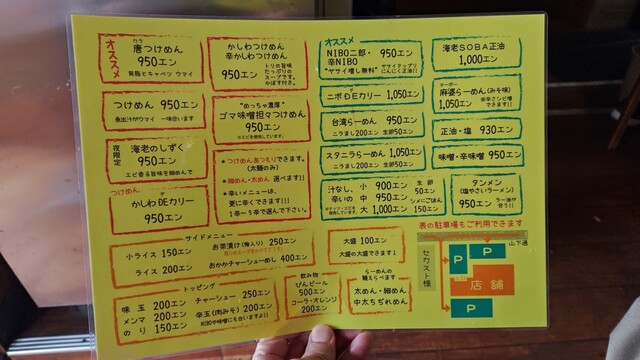 オススメ
カラ
唐つけめん
950エン
背脂とキャベツ ウマイ
かしわつけめん
辛かしわつけめん
950エン
トリの旨味
たっぷりの
スープです。
かぼす付き。
つけめん 950エン
魚出汁がウマイ 一味合います
"めっちゃ濃厚"
ゴマ味噌担々つけめん
950エン
夜限定
海老のしずく
950エン
エビ香る旨味を細めんで
つけめん
かしわDEカリー
950エン
*つけめんあつもりできます。
(太麺のみ)
*細めん・太めん 選べます!!
*辛いメニューは、
更に辛くできます!!!
1辛〜5辛で選んで下さい。
サイドメニュー
小ライス 150エン
ライス 200エン
お茶漬け(梅入り) 250エン
おかかチャーシューめし 400エン
トッピング
味玉 200エン
メンマ 200エン
のり 150エン
チャーシュー 250エン
辛玉(肉みそ) 200エン
オススメ
NIBO二郎・
辛NIBO
950エン
"ヤサイ増し無料"
ヤサイタップリ
にんにく正油!!
ニボDEカリー 1,050エン
台湾らーめん 950エン
ニラまし200エン 生卵50エン
スタニラらーめん 1,050エン
ニラまし200エン 生卵50エン
汁なし
辛いの
小 900エン
中 950エン
大 1,000エン
生卵
50エン
シメにごはん
150エン
海老SOBA正油
1,000エン
マーボー
麻婆らーめん(みそ味)
1,050エン
正油・塩 930エン
味噌・辛味噌 950エン
タンメン
(塩やさいラーメン)
950エン
ラー油が
合う!!
大盛 100エン
大盛の大盛できます!
飲み物
びんビール
500エン
コーラ・オレンジ
200エン
らーめんの
麺えらべます
太めん・細めん
中太ちぢれめん
表の駐車場もご利用できます
山下通
セクスト様
P
P
店舗
P